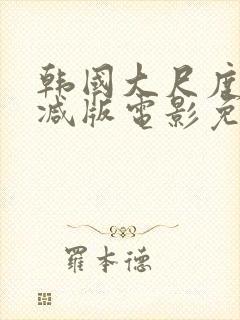 韩国大尺度
减版电影免
羅本德